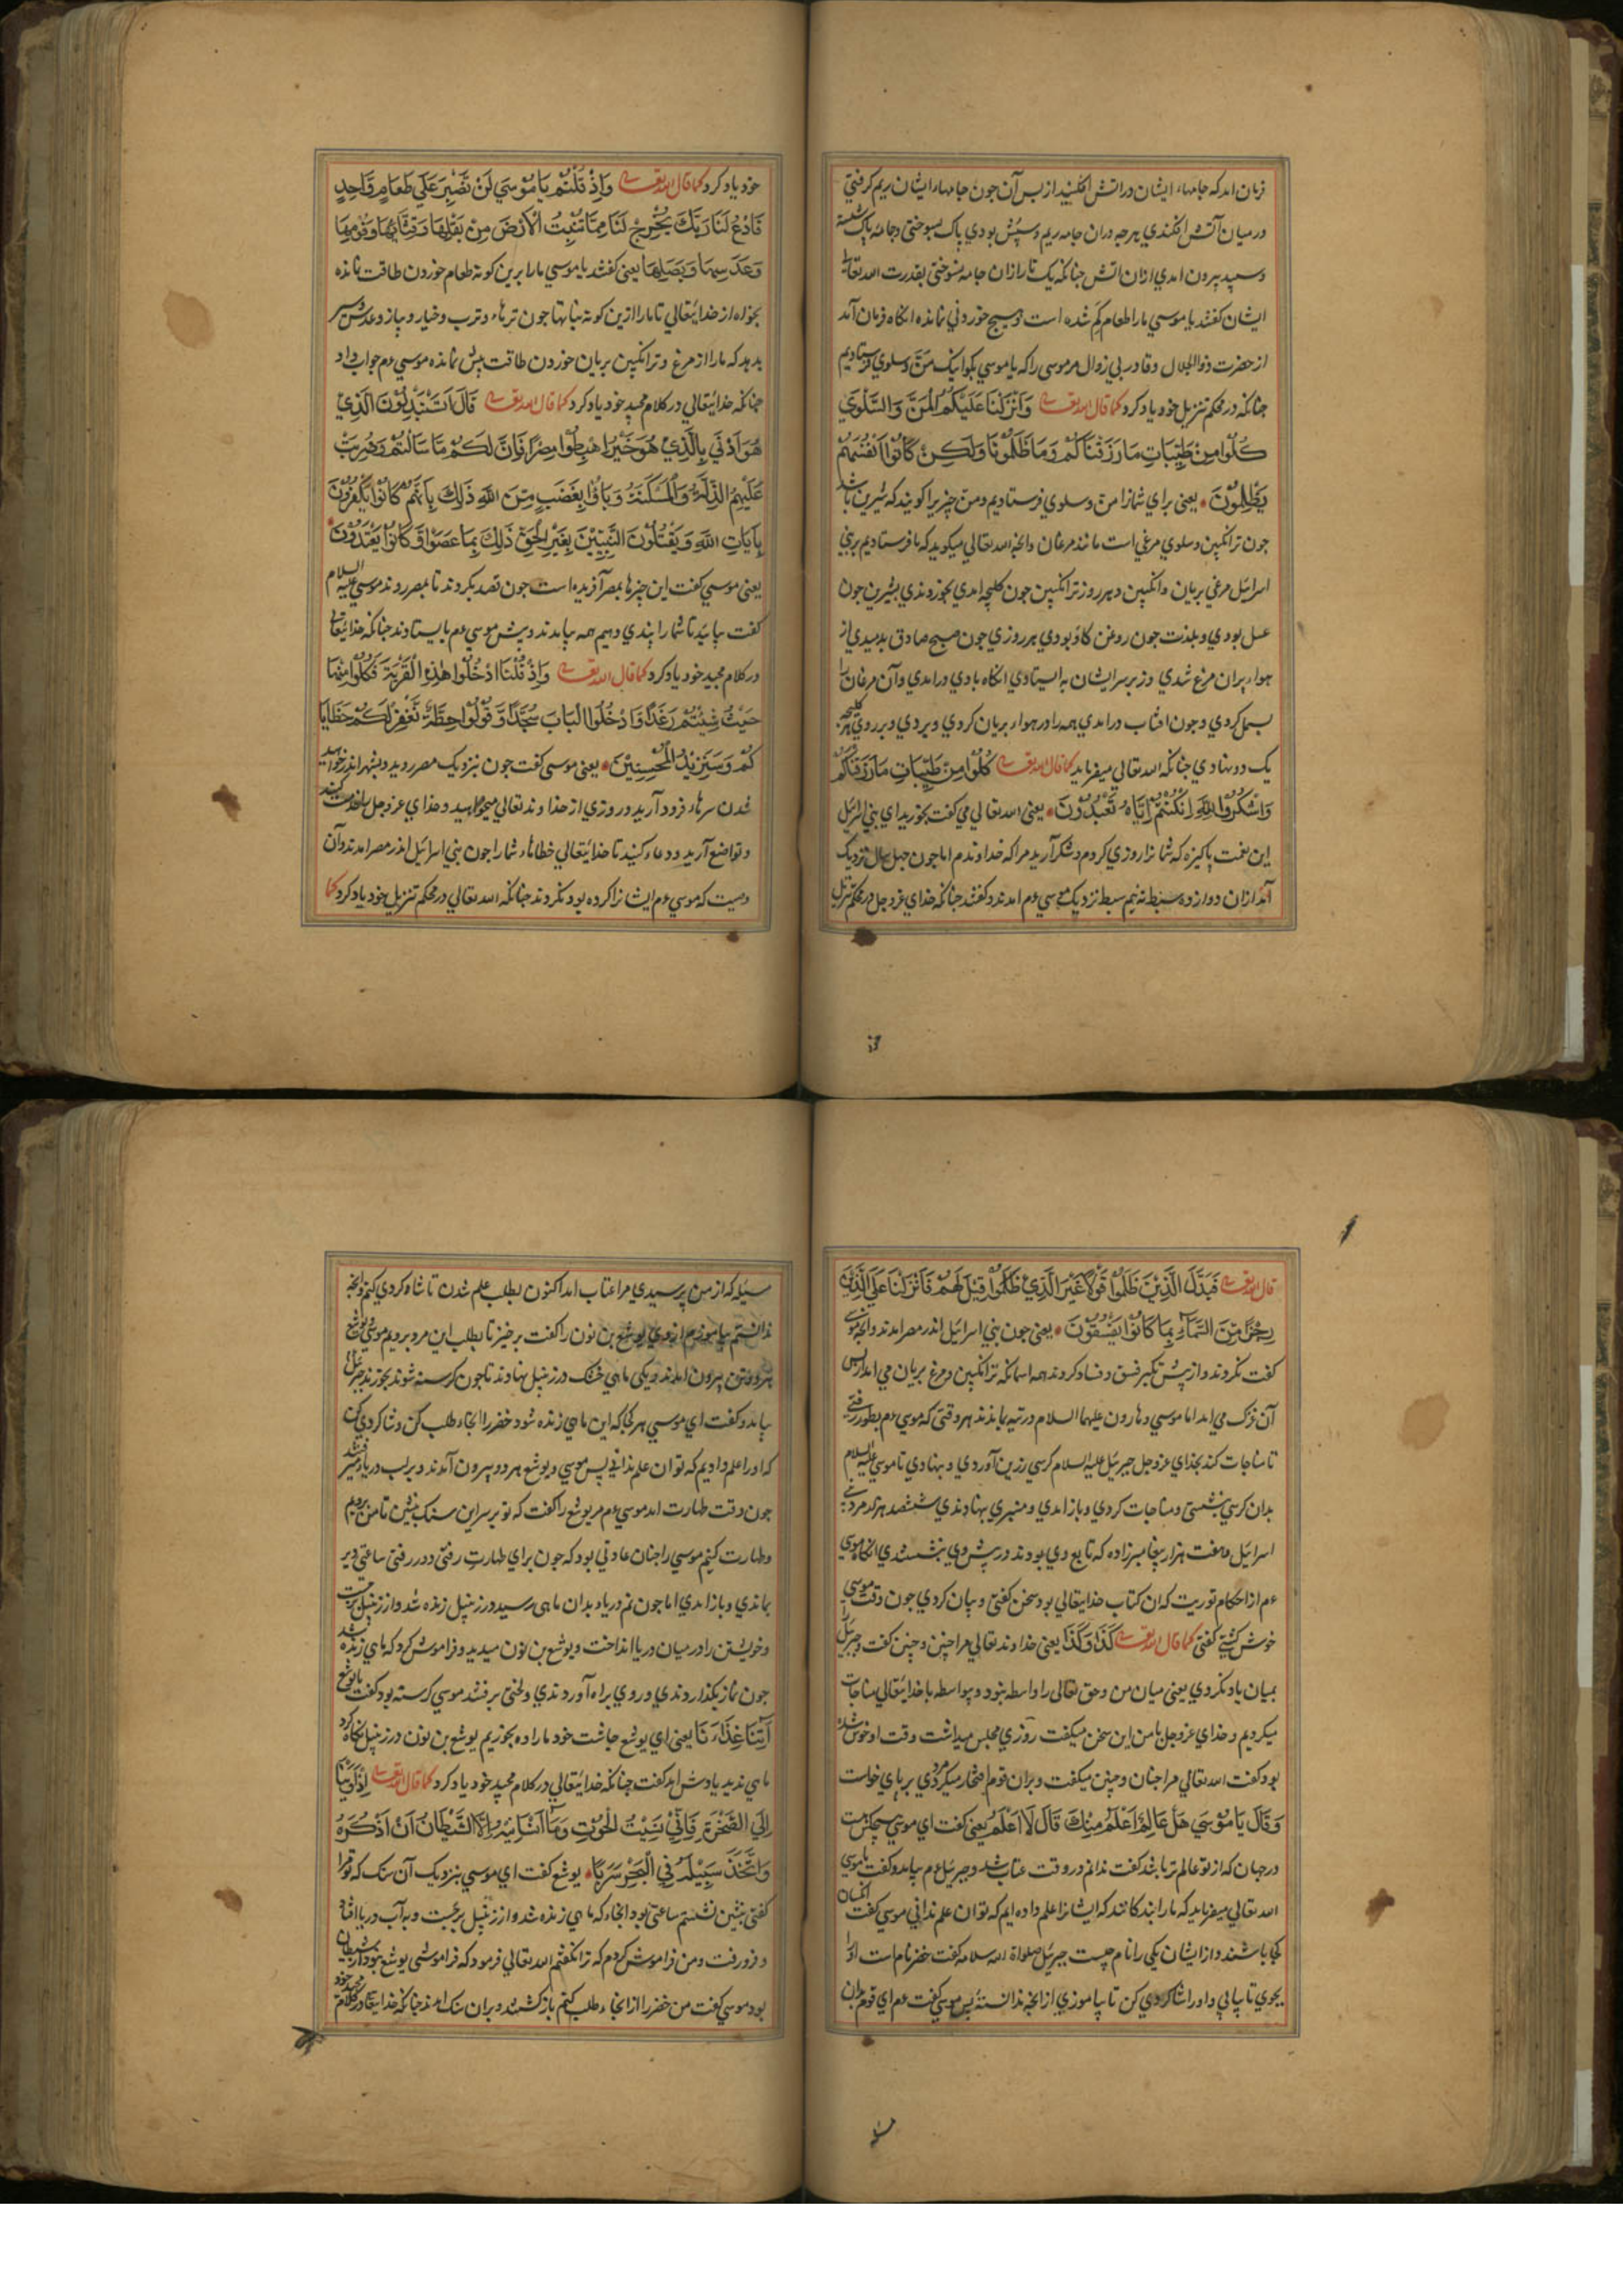 فرمان امد که جامهاء ایشان در اتش افکنید از بس آن جون جامهاء ایشان ریم کرفتی
در میان آتش افکندی هرجه دران جامه ریم و سپش بودی باک بسوختی و جامه باک شسته
و سپید بیرون امدی ازان اتش جنانکه یک تار ازان جامه نسوختی بقدرت الله تعالی
ایشان کفتند یا موسی مارا طعام کم شده است و هیج خوردنی نمانده انکاه فرمان آمد
از حضرت ذوالجلال و قادر بی زوال مر موسی را که یا موسی بکو اینک من و سلوی فرستادیم
جنانکه در محکم تنزیل خود یاد کرد کما قال الله تعالی وَاَنْزَلْنَا عَلَیْکُمُ الْمَنَّ وَالسَّلْوٰی
کُلُوا مِنْ طَیِّبَاتِ مَا رَزَقْنَاکُمْ وَمَا ظَلَمُونَا وَلٰکِنْ کَانُوا اَنْفُسَهُمْ
یَظْلِمُونَ یعنی برای شمارا من و سلوی فرستادیم و من جیزیرا کویند که شیرین باشد
جون ترانکبین و سلوی مرغی است مانند مرغان وانجه الله تعالی میکوید که ما فرستادیم بر بنی
اسرائیل مرغی بریان و انکبین و هر روز ترانکبین جون کلیجه امدی بخوردندی بشیرین جون
عسل بودی و بلذت جون روغن کاو بودی هر روزی جون صبح صادق بدمیدی از
هواء بران مرغ شدی و زبر سر ایشان به ایستادی انکاه بادی درامدی و آن مرغان را
بسمل کردی و جون افتاب درامدی همه را در هواء بریان کردی و ببردی و بر روی هر کلیجه
یک دو نهادی جنانکه الله تعالی میفرماید کما قال الله تعالی کُلُوا مِنْ طَیِّبَاتِ مَا رَزَقْنَاکُمْ
وَاشْکُرُوا لِلّٰهِ اِنْ کُنْتُمْ اِیَّاهُ تَعْبُدُونَ یعنی الله تعالی می کفت بخورید ای بنی اسرائیل
این نعمت باکیزه که شمارا روزی کردم و شکر آرید مرا که خداوندم اما جون جهل سال نزدیک
آمد ازان دوازده سبط نه نیم سبط نزدیک موسی عم امدند و کفتند جنانکه خدای عزوجل در محکم تنزیل
خود یاد کرد کما قال الله تعالی وَاِذْ قُلْتُمْ یَا مُوسٰی لَنْ نَصْبِرَ عَلٰی طَعَامٍ وَاحِدٍ
فَادْعُ لَنَا رَبَّکَ یُخْرِجْ لَنَا مِمَّا تُنْبِتُ الْاَرْضُ مِنْ بَقْلِهَا وَقِثَّائِهَا وَفُومِهَا
وَعَدَسِهَا وَبَصَلِهَا یعنی کفتند یا موسی مارا برین کونه طعام خوردن طاقت نمانده
بخواه از خدایتعالی تا مارا ازین کونه نباتها جون ترهاء و ترب و خیار و پیاز و عدس و سیر
بدهد که مارا از مرغ و ترانکبین بریان خوردن طاقت بیش نمانده موسی عم جواب داد
جنانکه خدایتعالی در کلام مجید خود یاد کرد کما قال الله تعالی قَالَ اَتَسْتَبْدِلُونَ الَّذِی
هُوَ اَدْنٰی بِالَّذِی هُوَ خَیْرٌ اِهْبِطُوا مِصْرًا فَاِنَّ لَکُمْ مَا سَاَلْتُمْ وَضُرِبَتْ
عَلَیْهِمُ الذِّلَّةُ وَالْمَسْکَنَةُ وَبَاؤُا بِغَضَبٍ مِنَ اللّٰهِ ذٰلِکَ بِاَنَّهُمْ کَانُوا یَکْفُرُونَ
بِاٰیَاتِ اللّٰهِ وَیَقْتُلُونَ النَّبِیِّینَ بِغَیْرِ الْحَقِّ ذٰلِکَ بِمَا عَصَوْا وَکَانُوا یَعْتَدُونَ
یعنی موسی کفت این جیزها بمصر آفریده است جون قصد بکردند تا بمصر روند موسی علیه السلام
کفت بیایید تا شمارا پندی دهیم همه بیامدند و بیش موسی عم بایستادند جنانکه خدایتعالی
در کلام مجید خود یاد کرد کما قال الله تعالی وَاِذْ قُلْنَا ادْخُلُوا هٰذِهِ الْقَرْیَةَ فَکُلُوا مِنْهَا
حَیْثُ شِئْتُمْ رَغَدًا وَادْخُلُوا الْبَابَ سُجَّدًا وَقُولُوا حِطَّةٌ نَغْفِرْ لَکُمْ خَطَایَا
کُمْ وَسَنَزِیدُ الْمُحْسِنِینَ یعنی موسی کفت جون بنزدیک مصر روید و بشهر اندر خواهید
شدن سرهاء فرود آرید و روزی از خداوند تعالی میخواهید و خدای عزوجل را خدمت کنید
و تواضع آرید و دعاء کنید تا خدایتعالی خطاهاء شمارا جون بنی اسرائیل اندر مصر امدند و آن
وصیت که موسی عم ایشانرا کرده بود نکردند جنانکه الله تعالی در محکم تنزیل خود یاد کرد کما
قال الله تعالی فَبَدَّلَ الَّذِینَ ظَلَمُوا قَوْلًا غَیْرَ الَّذِی قِیلَ لَهُمْ فَاَنْزَلْنَا عَلَی الَّذِینَ ظَلَمُوا
رِجْزًا مِنَ السَّمَاءِ بِمَا کَانُوا یَفْسُقُونَ یعنی جون بنی اسرائیل اندر مصر امدند وانجه موسی
کفت نکردند و از پس تکبر فسق و فساد کردند همه اسمانکه ترانکبین و مرغ بریان می امد از پس
آن می امد اما موسی و هارون علیهما السلام در تیه بماندند هر وقتی که موسی عم بطور رفتی
تا مناجات کند بخدای عزوجل جبرئیل علیه السلام کرسی زرین آوردی و بنهادی تا موسی علیه السلام
بدان کرسی بنشستی و مناجات کردی و باز امدی و منبری بنهادندی ششصد هزار مرد بنی
اسرائیل و هفت هزار پیغامبرزاده که تابع وی بودند در پیش وی بنشستندی انکاه موسی
عم از احکام توریت که ان کتاب خدایتعالی بود سخن کفتی و بیان کردی جون وقت موسی را
خوش کشتی کفتی کما قال الله تعالی کَذَا وَکَذَا یعنی خداوند تعالی مرا جنین و جنین کفت و جبرئیل را
بمیان یاد نکردی یعنی میان من و حق تعالی را واسطه نبود و بیواسطه با خدایتعالی مناجات
میکردیم و خدای عزوجل بامن این سخن میکفت روزی مجلس میداشت وقت او خوش شده
بود کفت الله تعالی مرا جنان و جنین میکفت و بران قوم افتخار میکرد مردی بر پای خواست
وَقَالَ یَا مُوسٰی هَلْ عَالِمٌ اَعْلَمُ مِنْکَ قَالَ لَا اَعْلَمُ یعنی کفت ای موسی هیجکس هست
در جهان که از تو عالم تر باشد کفت ندانم در وقت عتاب شد و جبرئیل عم بیامد و کفت یا موسی
الله تعالی میفرماید که مارا بندکانند که ایشانرا علم داده ایم که تو ان علم ندانی موسی کفت انکسان
کجا باشند و از ایشان یکی را نام جیست جبرئیل صلواة الله سلامه کفت خضر نام است اورا
بجوی تا بیابی و اورا شاکردی کن تا بیاموزی از انجه ندانسته پس موسی کفت عم ای قوم بدان
مسیله که از من پرسیدی مرا عتاب امد اکنون بطلب علم شدن تا شاکردی کنم وانجه
ندانستم بیاموزم از وی یوشع بن نون را کفت برخیز تا بطلب این مرد برویم موسی و یوشع
هر دو تن بیرون امدند و یکی ماهی خشک در زنبیل نهادند تا جون کرسنه شوند بخورند جبرئیل
بیامد و کفت ای موسی هر کجا که این ماهی زنده شود خضر را انجاء طلب کن و شاکردی کن
که اورا علم دادیم که تو ان علم ندانی پس موسی و یوشع هر دو بیرون آمدند و بر لب دریا رفتند
جون وقت طهارت امد موسی عم مر یوشع را کفت که تو بر سر این سنک بنشین تا من بروم
و طهارت کنم موسی را جنان عادتی بود که جون برای طهارت رفتی دور رفتی ساعتی دیر
بماندی و باز امدی اما جون نم دریاء بدان ماهی رسید در زنبیل زنده شد و از زنبیل برجست
و خویشتن را در میان دریا انداخت و یوشع بن نون میدید و فراموش کرد که ماهی زنده شد
جون نماز بکذاردندی و روی براه آوردندی و لختی برفتند موسی کرسنه بود کفت یا یوشع
اٰتِنَا غَدَاءَنَا یعنی ای یوشع جاشت خود مارا ده بخوریم یوشع بن نون در زنبیل نکاه کرد
ماهی ندید یادش امد کفت جنانکه خدایتعالی در کلام مجید خود یاد کرد کما قال الله تعالی اِذْ اَوَیْنَا
اِلَی الصَّخْرَةِ فَاِنِّی نَسِیتُ الْحُوتَ وَمَا اَنْسَانِیهُ اِلَّا الشَّیْطَانُ اَنْ اَذْکُرَهُ
وَاتَّخَذَ سَبِیلَهُ فِی الْبَحْرِ سَرَبًا یوشع کفت ای موسی بنزدیک آن سنک که تو مرا
کفتی بنشین نشستم ساعتی بود انجاء که ماهی زنده شد و از زنبیل برجست و به آب دریا افتاد
و فرو رفت و من فراموش کردم که ترا نکفتم الله تعالی فرمود که فراموشی یوشع نبود از شیطان
بود موسی کفت من خضر را از انجاء طلب کنم باز کشتند و بران سنک امدند جنانکه خدایتعالی در کلام مجید خود